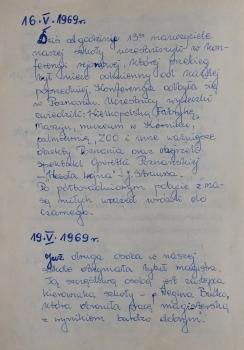 16.V.1969r.
Dziś o godzinie 13tej nauczyciele
naszej szkoły uczestniczyli w kon-
ferencji rejonowej, której przebieg
był nieco odmienny od każdej
poprzedniej. Konferencja odbyła się
w Poznaniu. Uczestnicy wycieczki
zwiedzili: Wielkopolską Fabrykę
Maszyn, muzeum w Kórniku,
palmiarnię, ZOO i inne ważniejsze
obiekty Poznania oraz obejrzeli
spektakl Operetki Poznańskiej
"Wesoła wojna" J. Straussa.
Po półtoradniowym pobycie z ma-
są miłych wrażeń wrócili do
Czarnego.
19.V.1969r.
Już druga osoba w naszej
szkole otrzymała tytuł magistra.
Tą szczęśliwą osobą jest zastępca
kierownika szkoły - p. Regina Butko,
która obroniła pracę magisterską
z wynikiem bardzo dobrym.